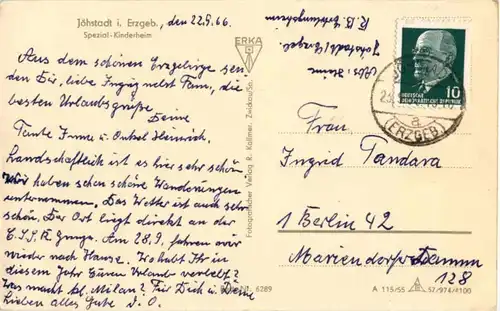 Jöhstadt i. Erzgeb., den 22.9.66
Spezial-Kinderheim
Aus dem schönen Erzgebirge sen
den Dir, liebe Ingrid nebst Fam., die
besten Urlaubsgrüße.
Deine
Tante Irma u. Onkel Heinrich.
Landschaftlich ist es hier sehr schön.
Wir haben schon schöne Wanderungen
unternommen. Das Wetter ist auch sehr
schön. Der Ort liegt direkt an der
Č.S.S.R. Grenze. Am 28.9. fahren wir
wieder nach Hause. Wo habt Ihr in
diesem Jahr Euren Urlaub verlebt?
Was macht kl. Milan? Für Dich u. Deine
Lieben alles Gute d. O.
ERKA
Fotografischer Verlag R. Kallmer, Zwickau/Sa.
6289
Abs.: Heine
Jöhstadt/Erzgeb.
10
DEUTSCHE
DEMOKRATISCHE REPUBLIK
a
(ERZGEB.)
Frau
Ingrid Tandara
1 Berlin 42
Mariendorfer Damm
128
A 115/55
57/974/4100